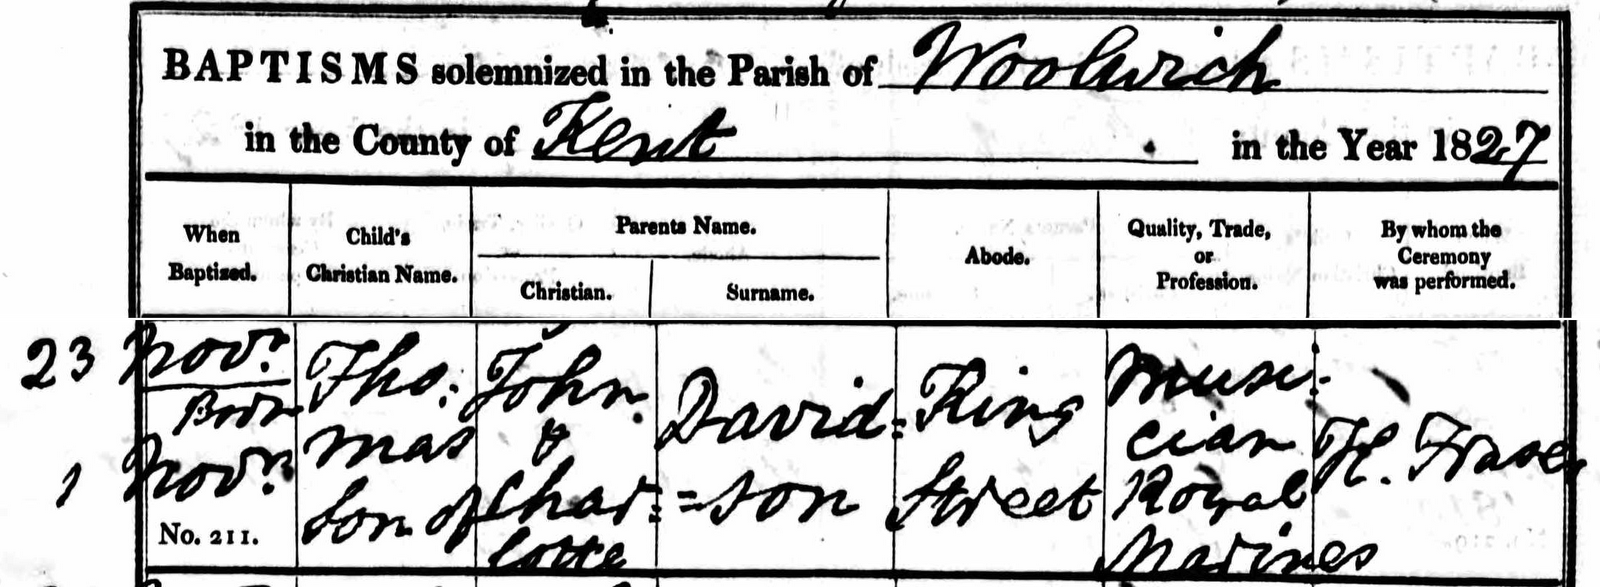 BAPTISMS solemnized in the Parish of Woolwich
in the County of Kent in the Year 1827
When Baptized.
Child's Christian Name.
Parents Name.
Christian.
Surname.
Abode.
Quality, Trade, or Profession.
By whom the Ceremony was performed.
23 Novr.
Born
1 Novr.
No. 211.
Tho:
mas
Son of
John
&
Char:
lotte
David=
=son
King
Street
Musi:
cian
Royal
Marines
H. Fraser